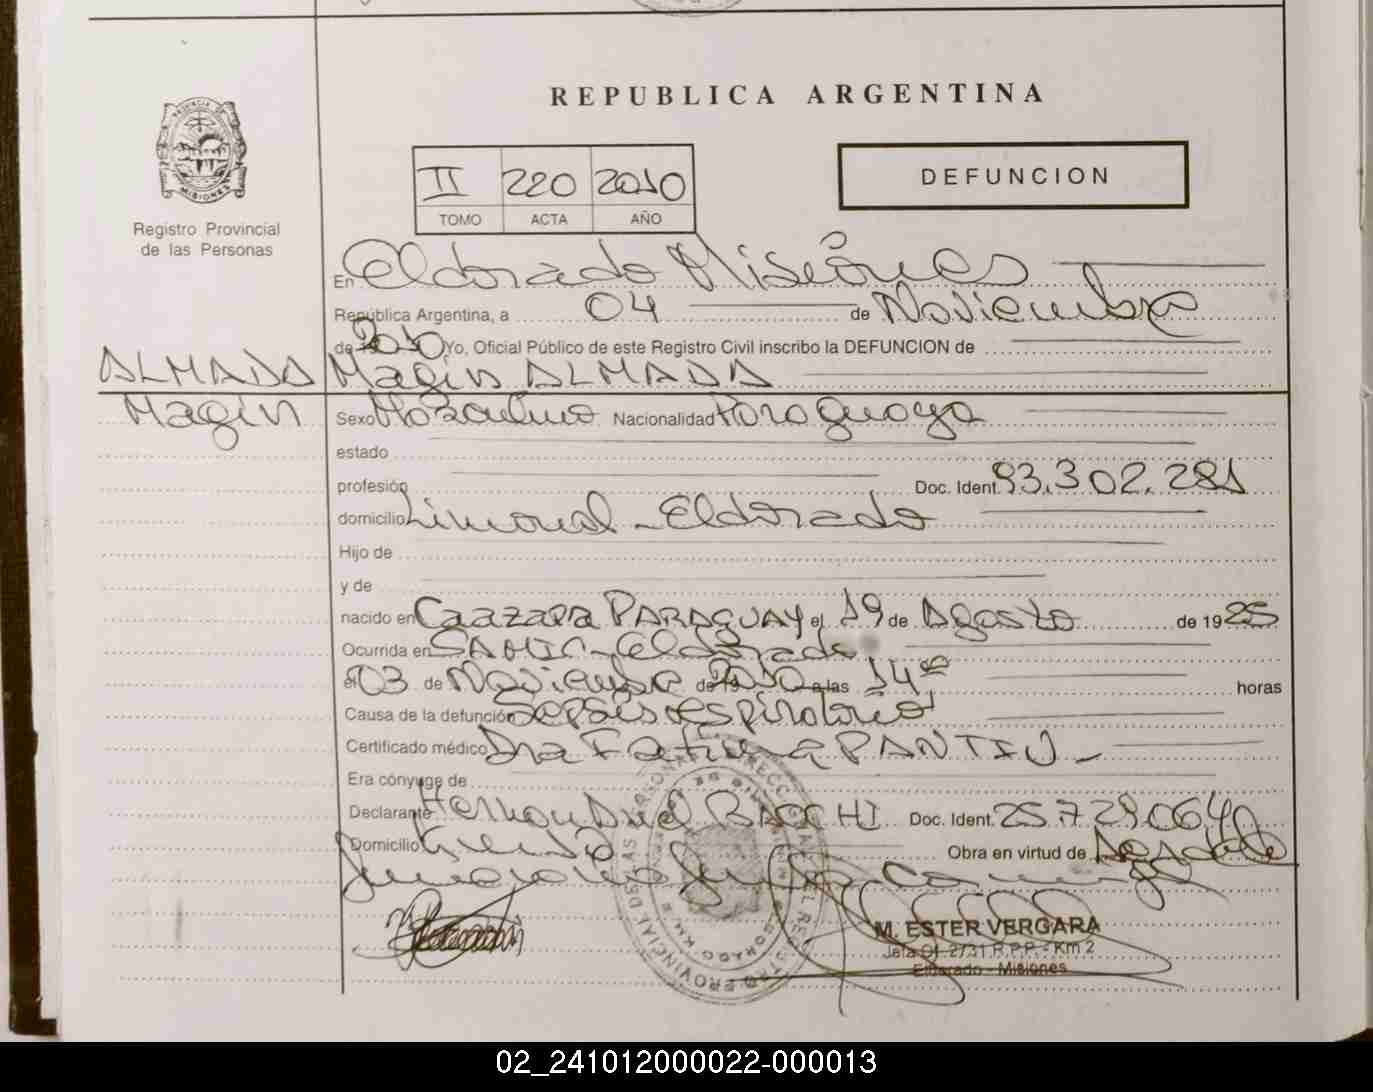 REPUBLICA ARGENTINA
DEFUNCION
II 220 2010
TOMO ACTA AÑO
MISIONES
Registro Provincial
de las Personas
En Eldorado Misiones
República Argentina, a 04 de Noviembre
de 2010 Yo, Oficial Público de este Registro Civil inscribo la DEFUNCION de
ALMADA Magin ALMADA
Magin
Sexo Masculino Nacionalidad Paraguaya
estado
profesión Doc. Ident. 93.302.281
domicilio Limonal - Eldorado
Hijo de
y de
nacido en Caazapa PARAGUAY el 19 de Agosto de 1925
Ocurrida en SAMIC - Eldorado
el 03 de Noviembre de 2010 a las 14 horas
Causa de la defunción Sepsis respiratorio
Certificado médico Dra Fatima PANTIU -
Era cónyuge de
Declarante Hernan Ariel BACCHI Doc. Ident. 25.729.064
Domicilio Obra en virtud de
M. ESTER VERGARA
Jefa Of. 2731 R.P.P. - Km 2
Eldorado - Misiones
02_241012000022-000013